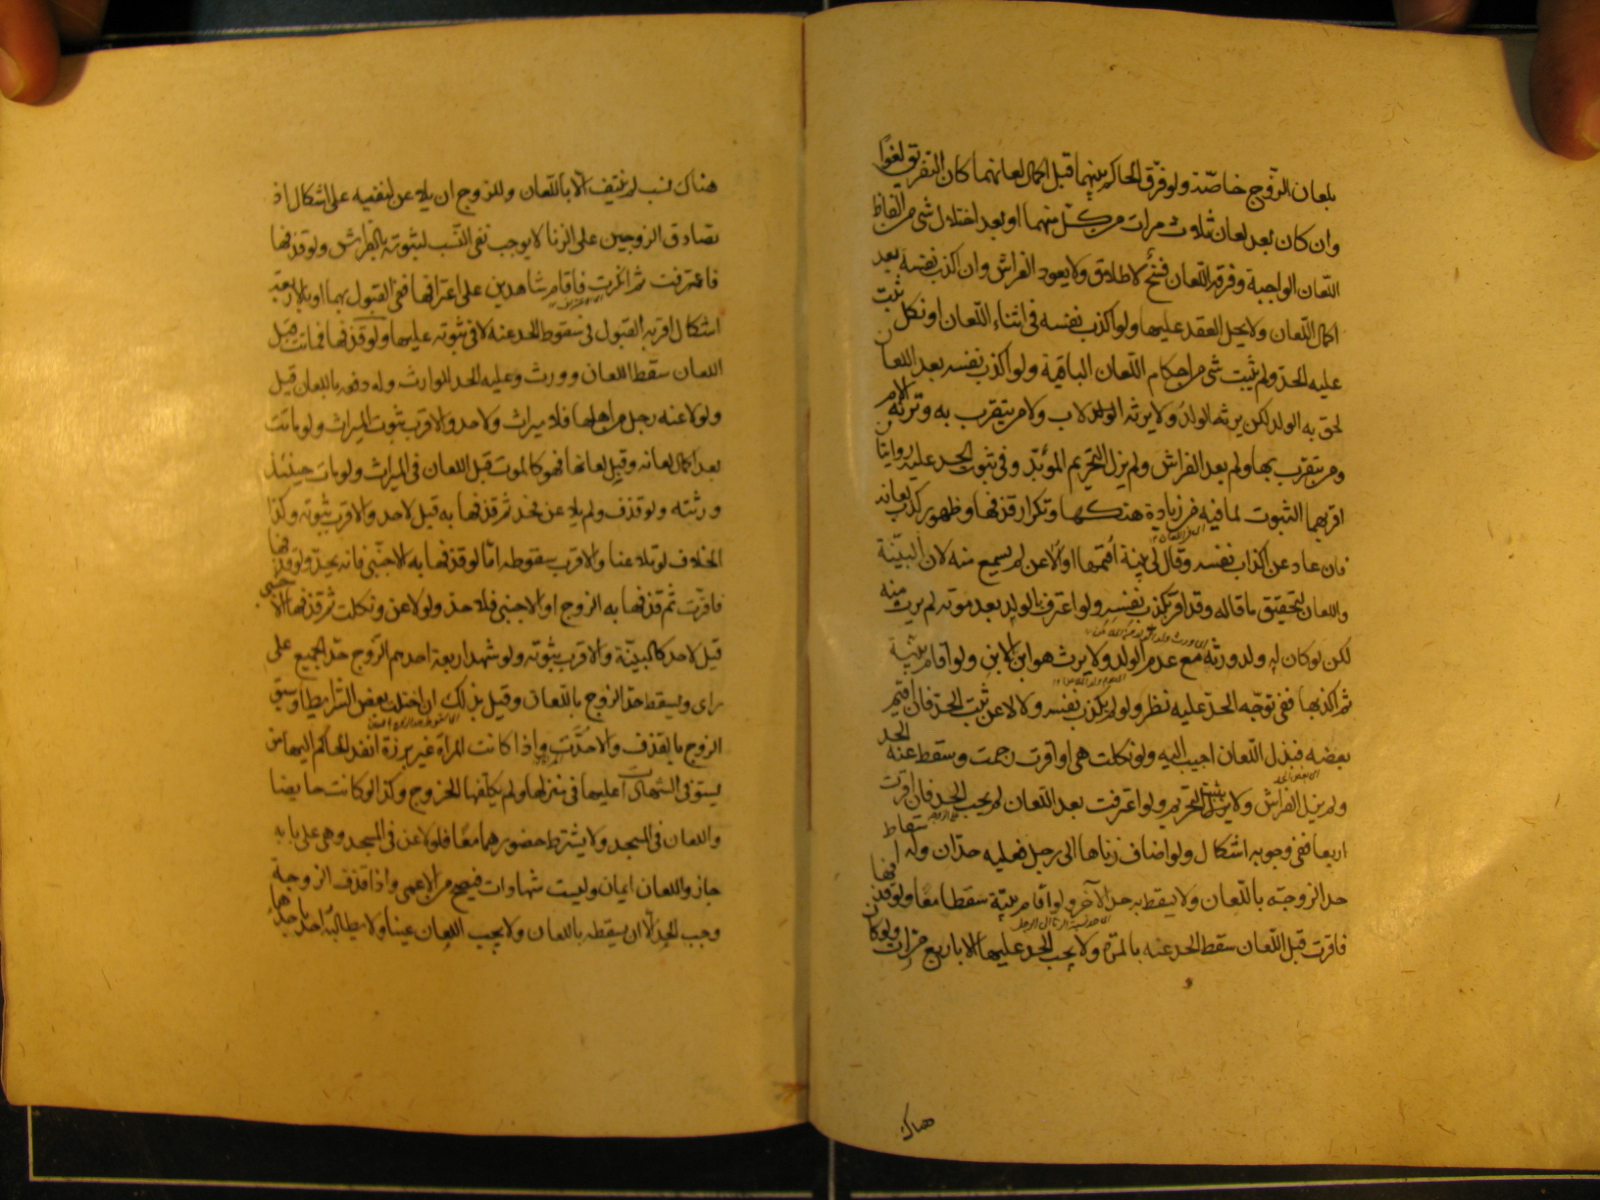 بلعان الزّوج خاصّة ولو فرّق الحاكم بينهما قبل اكمال لعانهما كان التفريق لغوًا
وان كان بعد لعان ثلاث مرات من كلّ منهما او بعد اختلال شئ من الفاظ
اللّعان الواجبة وفرقة اللّعان فسخٌ لا طلاق ولا يعود الفراش وان اكذب نفسه بعد
اكمال اللّعان ولا يحل العقد عليها ولو اكذب نفسه فى اثناء اللّعان او نكل ثبت
عليه الحدّ ولم يثبت شئ من احكام اللّعان الباقية ولو اكذب نفسه بعد اللعان
لحق به الولد لكن يرثه الولدُ ولا يرثه الاب ولا من يتقرب به وترثه الام
ومن يتقرب بها ولم يعد الفراش ولم يزل التحريم المؤبّد وفى ثبوت الحد عليه روايتان
اقربهما الثبوت لما فيه من زيادة هتكها وتكرار قذفها وظهور كذب لعانه
فان عاد عن اكذاب نفسه وقال لى بينة اُقيمها او اُلاعن لم يسمع منه لان البيّنة
واللعان لتحقيق ما قاله وقد اقر بكذب نفسه ولو اعترف بالولد بعد موته لم يرث منه
لكن لو كان له ولد ورثه مع عدم الولد ولا يرث هو ابن الابن ولو اقام بيّنة
ثم اكذبها ففى توجّه الحدّ عليه نظر ولو لم يكذب نفسه ولا لاعن ثبت الحد فان اقيم
بعضه فبذل اللّعان اجيب اليه ولو نكلت هى او اقرت رجمت وسقط عنه الحد
ولم يزل الفراش ولا يثبت التحريم ولو اعترفت بعد اللّعان لم يجب الحد فان اقرت
اربعا ففى وجوبه اشكال ولو اضاف زناها الى رجل فعليه حدّان وله اسقاط
حد الزوجة باللّعان ولا يسقط به حد الآخر ولو اقام بيّنة سقطا معًا ولو قذفها
فاقرت قبل اللّعان سقط الحد عنه بالمرّة ولا يجب الحد عليها الا باربع مرّات ولو كان
هناك
هناك نسب لم ينتف الّا باللّعان وللزوج ان يلاعن لنفيه على اشكال اذ
تصادق الزوجين على الزنا لا يوجب نفى النّسب لثبوته بالفراش ولو قذفها
فاعترفت ثم انكرت فاقام شاهدين على اعترافها ففى القبول بهما او بالاربعة
اشكال اقربه القبول فى سقوط الحد عنه لا فى ثبوته عليها ولو قذفها فماتت قبل
اللعان سقط اللعان وورث وعليه الحد للوارث وله دفعه باللعان قيل
ولو لاعنه رجل من اهلها فلا ميراث ولا حد والاقرب ثبوت الميراث ولو ماتت
بعد اكمال لعانه وقبل لعانها فهو كالموت قبل اللعان فى الميراث ولو مات حينئذ
ورثته ولو قذف ولم يلاعن فحد ثم قذفها به قيل لا حد والاقرب ثبوته وكذا
الخلاف لو تلاعنا والاقرب سقوطه امّا لو قذفها به الاجنبى فانه يحدّ ولو قذفها
فاقرّت ثم قذفها به الزوج او الاجنبى فلا حدّ ولو لاعن ونكلت ثم قذفها الاجنبى
قيل لا حد كالبيّنة والاقرب ثبوته ولو شهد اربعة احدهم الزّوج حدّ الجميع على
راى ويسقط حدّ الزوج باللّعان وقيل بذلك ان اختلت بعض الشرايط او سبق
الزوج بالقذف والا حُدّت واذا كانت المراة غير برزة انفذ الحاكم اليها من
يستوفى الشهادات عليها فى منزلها ولم يكلّفها الخروج وكذا لو كانت حايضا
واللعان فى المسجد ولا يشترط حضورهما معًا فلو لاعن فى المسجد وهى على بابه
جاز واللعان ايمان وليست شهادات فيصح من الاعمى واذا قذف الزوجة
وجب الحد الّا ان يسقطه باللعان ولا يجب اللعان عينا ولا يطالبه احد بحدّها